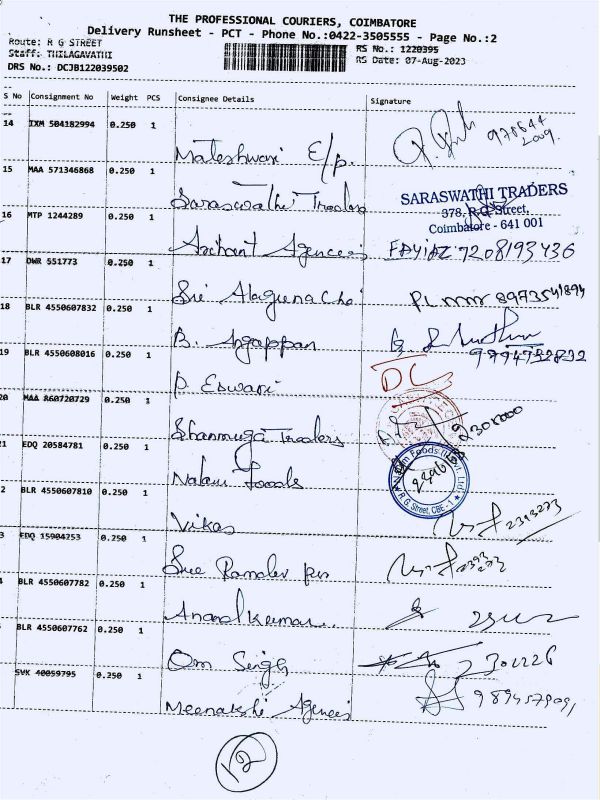 THE PROFESSIONAL COURIERS, COIMBATORE
Delivery Runsheet - PCT - Phone No.:0422-3505555 - Page No.:2
Route: R G STREET
RS No.: 1220395
Staff: THILAGAVATHI
RS Date: 07-Aug-2023
DRS No.: DCJB122039502
S No Consignment No Weight PCS Consignee Details Signature
14 IXM 504182994 0.250 1
Mateshwari E/p.
15 MAA 571346868 0.250 1
Saraswathi Traders
SARASWATHI TRADERS
378, R.G. Street,
Coimbatore - 641 001
16 MTP 1244289 0.250 1
Archant Agencees 7208193436
17 DWR 551773 0.250 1
Sri Alaguna
18 BLR 4550607832 0.250 1
B. Angappan
19 BLR 4550608016 0.250 1
P. Eswari
DC
20 MAA 860720729 0.250 1
Shanmuga Traders
21 EDQ 20584781 0.250 1
Nalam Foods
Nalam Foods (I) Pvt. Ltd.
R G Street, CBE - 1
2 BLR 4550607810 0.250 1
Vikas 2313273
3 EDQ 15904253 0.250 1
Sree Ramdev
BLR 4550607782 0.250 1
Anand kumar
BLR 4550607762 0.250 1
Om Singh
SVK 40059795 0.250 1
Meenakshi Agencees
12